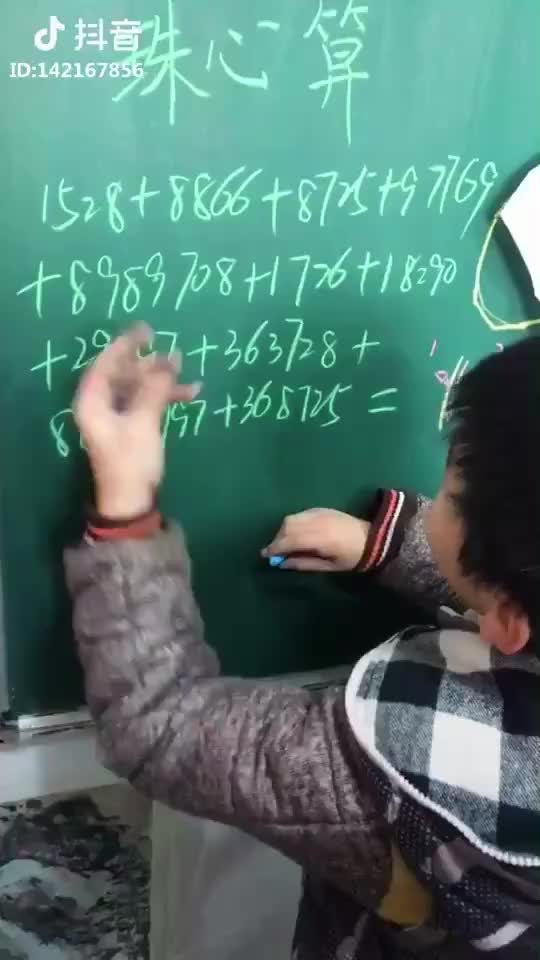 抖音
ID:142167856
珠心算
1528+8866+8725+97769
+8989708+1726+18290
+363728+
+368725=